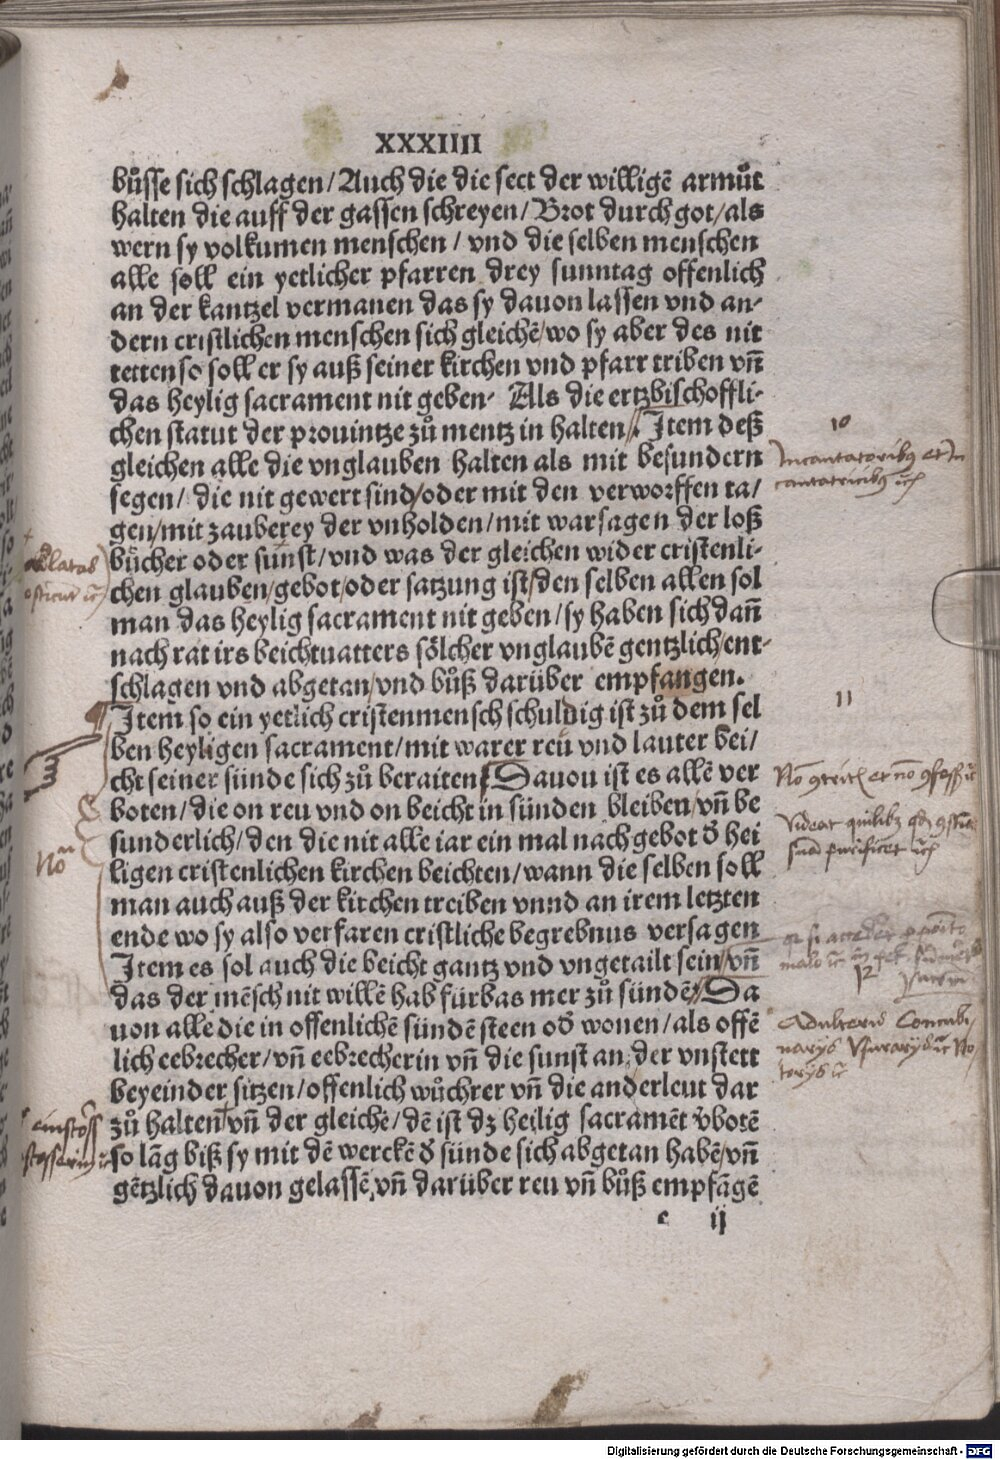 XXXIIII
bůsse sich schlagen/Auch die die sect der willigē armůt
halten die auff der gassen schreyen/Brot durch got/als
wern sy volkumen menschen/vnd die selben menschen
alle soll ein yetlicher pfarren drey sunntag offenlich
an der kantzel vermanen das sy dauon lassen vnd an-
dern cristlichen menschen sich gleichē/wo sy aber des nit
tetten so soll er sy auß seiner kirchen vnd pfarr triben vn̄
das heylig sacrament nit geben. Als die ertzbischoffli-
chen statut der prouintze zů mentz in halten/. Item deß
gleichen alle die vnglauben halten als mit besundern
segen/die nit gewert sind/oder mit den verworffen ta/
gen/mit zauberey der vnholden/mit warsagen der loß
bůcher oder sunst/vnd was der gleichen wider cristenli-
chen glauben/gebot/oder satzung ist/den selben allen sol
man das heylig sacrament nit geben/sy haben sich dan̄
nach rat irs beichtuatters sölcher vnglaubē gentzlich/ent-
schlagen vnd abgetan/vnd bůß darüber empfangen.
Item so ein yetlich cristenmensch schuldig ist zů dem sel
ben heyligen sacrament/mit warer reü vnd lauter bei/
cht seiner sünde sich zů beraiten/Dauou ist es allē ver
boten/die on reu vnd on beicht in sünden bleiben/vn̄ be
sunderlich/den die nit alle iar ein mal nach gebot d̄ hei
ligen cristenlichen kirchen beichten/wann die selben soll
man auch auß der kirchen treiben vnnd an irem letzten
ende wo sy also verfaren cristliche begrebnus versagen
Item es sol auch die beicht gantz vnd vngetailt sein/vn̄
das der mēsch nit willē hab fürbas mer zů sündē/Da
uon alle die in offenlichē sündē steen od̄ wonen/als offē
lich eebrecher/vn̄ eebrecherin vn̄ die sunst an der vnstett
beyeinder sitzen/offenlich wůchrer vn̄ die anderleut dar
zů halten/vn̄ der gleichē/dē ist dz heilig sacramēt v̄botē
so lāg biß sy mit dē werckē d̄ sünde sich abgetan habē/vn̄
gētzlich dauon gelassē/vn̄ darüber reu vn̄ bůß empfāgē
e ij
10
11
12
Digitalisierung gefördert durch die Deutsche Forschungsgemeinschaft - DFG